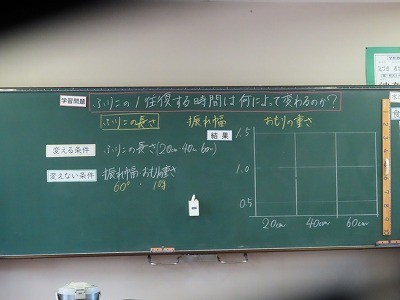 学習問題 ふりこの1往復する時間は何によって変わるのか?
ふりこの長さ 振れ幅 おもりの重さ
変える条件 ふりこの長さ(20cm・40cm・60cm)
変えない条件 振れ幅・おもりの重さ
60° ・ 10g
結果
1.5
1.0
0.5
20cm 40cm 60cm